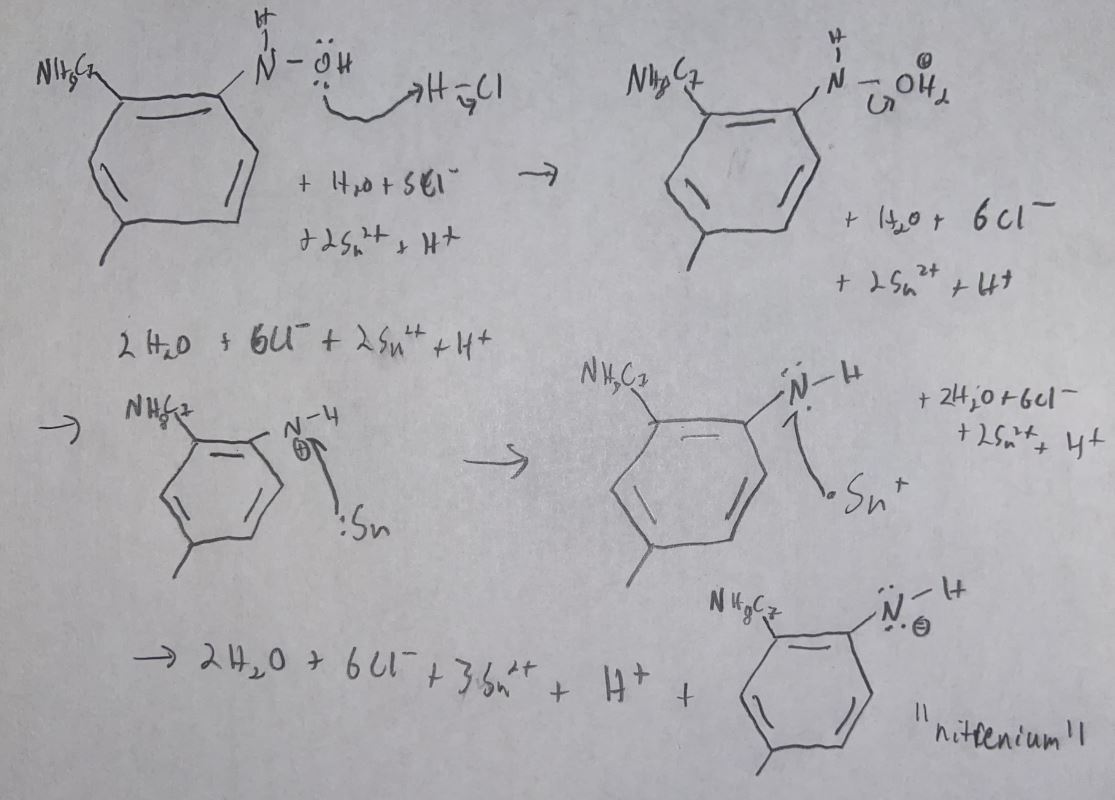 H
NH₈C₇ N - ÖH H - Cl
+ H₂O + 5Cl⁻ →
+ 2Sn²⁺ + H⁺
H
NH₈C₇ N - OH₂ ⊕
+ H₂O + 6Cl⁻
+ 2Sn²⁺ + H⁺
2 H₂O + 6Cl⁻ + 2Sn²⁺ + H⁺
→ NH₈C₇ N - H
⊕
:Sn
→ NH₈C₇ N̈ - H + 2H₂O + 6Cl⁻
+ 2Sn²⁺ + H⁺
·Sn⁺
→ 2H₂O + 6Cl⁻ + 3Sn²⁺ + H⁺ + NH₈C₇ N̈ - H
⊖
"nitrenium"